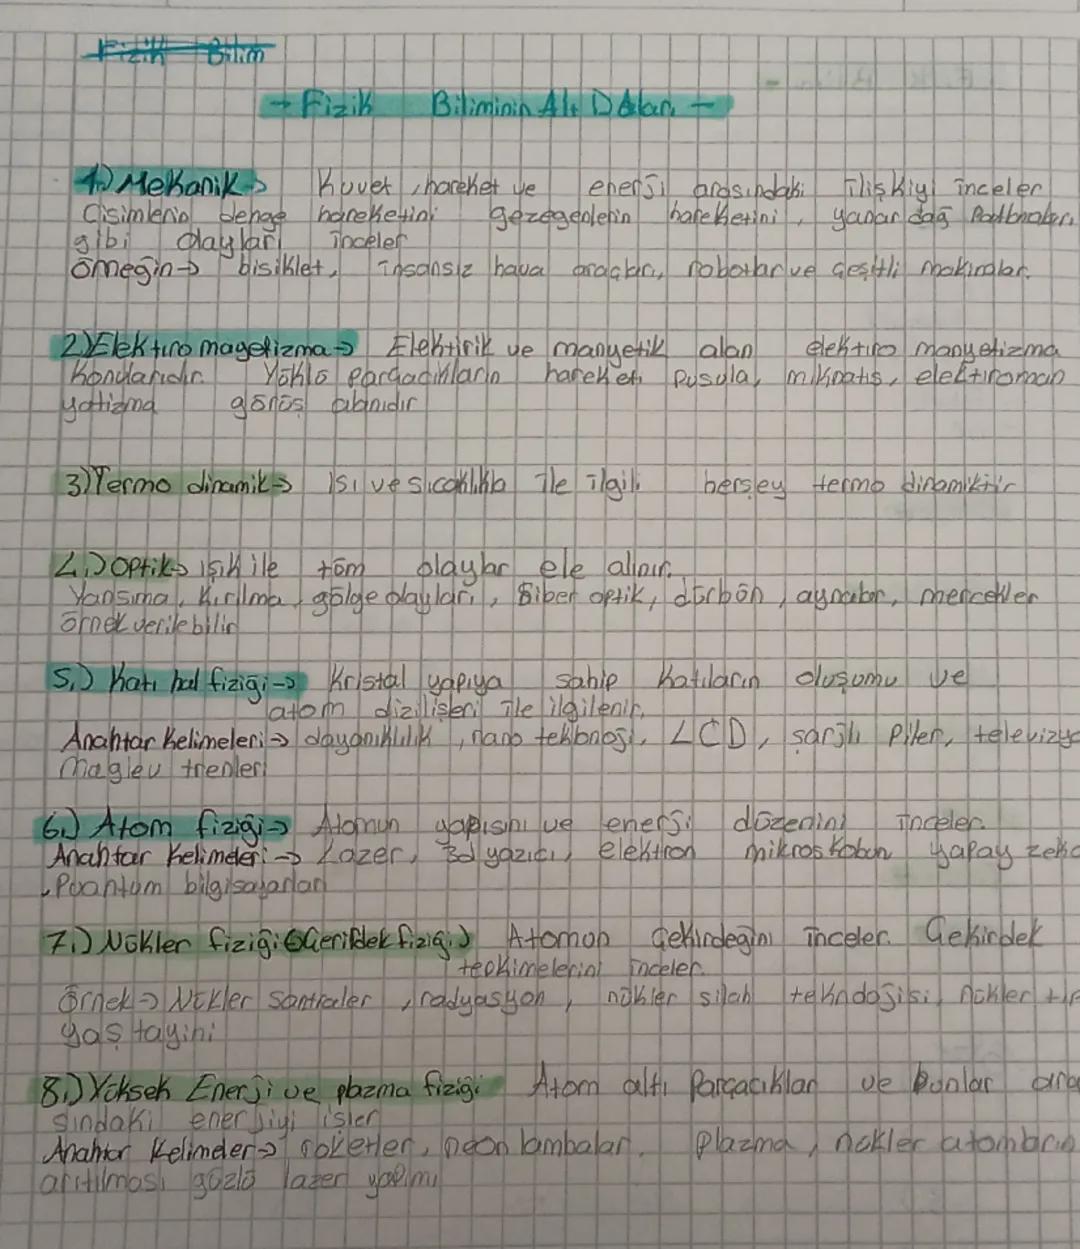 Fizik Bilim
→ Fizik Biliminin Alt Dalları —
1.) Mekanik → Kuvet, hareket ve enerji arasındaki ilişkiyi inceler
Cisimlerin denge hareketini gezegenlerin hareketini, yanar dağ
gibi olayları inceler
Örneğin → bisiklet, insansız hava araçları, robotlar ve çeşitli makinalar.
2) Elektıro magetizma → Elektirik ve manyetik alan elektıro manyetizma
konularıdır. Yüklü parçacıkların hareketi pusula, mıknatıs, elektıroman
yatizma görüş alanıdır
3) Termo dinamik → Isı ve sıcaklıkla ile ilgili herşey termo dinamiktir
4.) Optik → ışık ile tüm olaylar ele alınır.
Yansıma, Kırılma, gölge olayları, Siber optik, dürbün, aynalar, mercekler
örnek verilebilir
5.) Katı hal fiziği → Kristal yapıya sahip katıların oluşumu ve
atom dizilişleri ile ilgilenir.
Anahtar kelimeleri → dayanıklılık, nano teknoloji, LCD, şarjlı piller, televizyo
Maglev trenleri
6.) Atom fiziği → Atomun yapısını ve enerji düzenini inceler.
Anahtar kelimeleri → Lazer, 3d yazıcı, elektron mikroskobun yapay zeka
, Puantum bilgisayarları
7.) Nükler fiziği (Çerirdek fiziği) Atomun çekirdeğini inceler. Çekirdek
tepkimelerini inceler.
Örnek → Nükler santraler, radyasyon, nükler silah teknolojisi, nükler tıp
yaş tayini
8.) Yüksek Enerji ve plazma fiziği Atom altı Parçacıkları ve bunlar ara
sındaki enerjiyi işler
Anahtar Kelimeler → roketler, neon lambalar. plazma, nükler atomların
arıtılması gözlü lazer yapımı